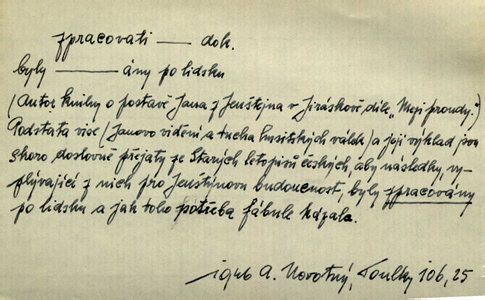 zpracovati — dok.
byly — ány po lidsku
(Autor knihy o postavě Jana z Jenštejna v Jiráskově díle „Mezi proudy.“)
Podstata vise (Janovo vidění a tucha husitských válek) a její výklad jsou
skoro doslovně přejaty ze Starých letopisů českých, aby následky, vy-
plývající z nich pro Jenštýnovu budoucnost, byly zpracovány
po lidsku a jak toho potřeba fábule kázala.
1946 A. Novotný, Toulky 106, 25